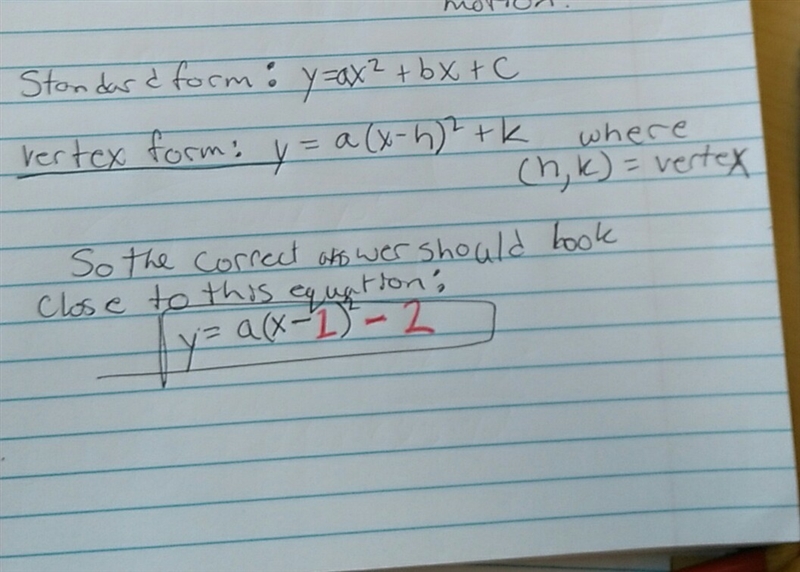 motion.
Standard form: y=ax² + bx + c
vertex form: y = a(x-h)² + k where
(h,k) = vertex
So the correct answer should look
close to this equation:
y= a(x-1)² - 2